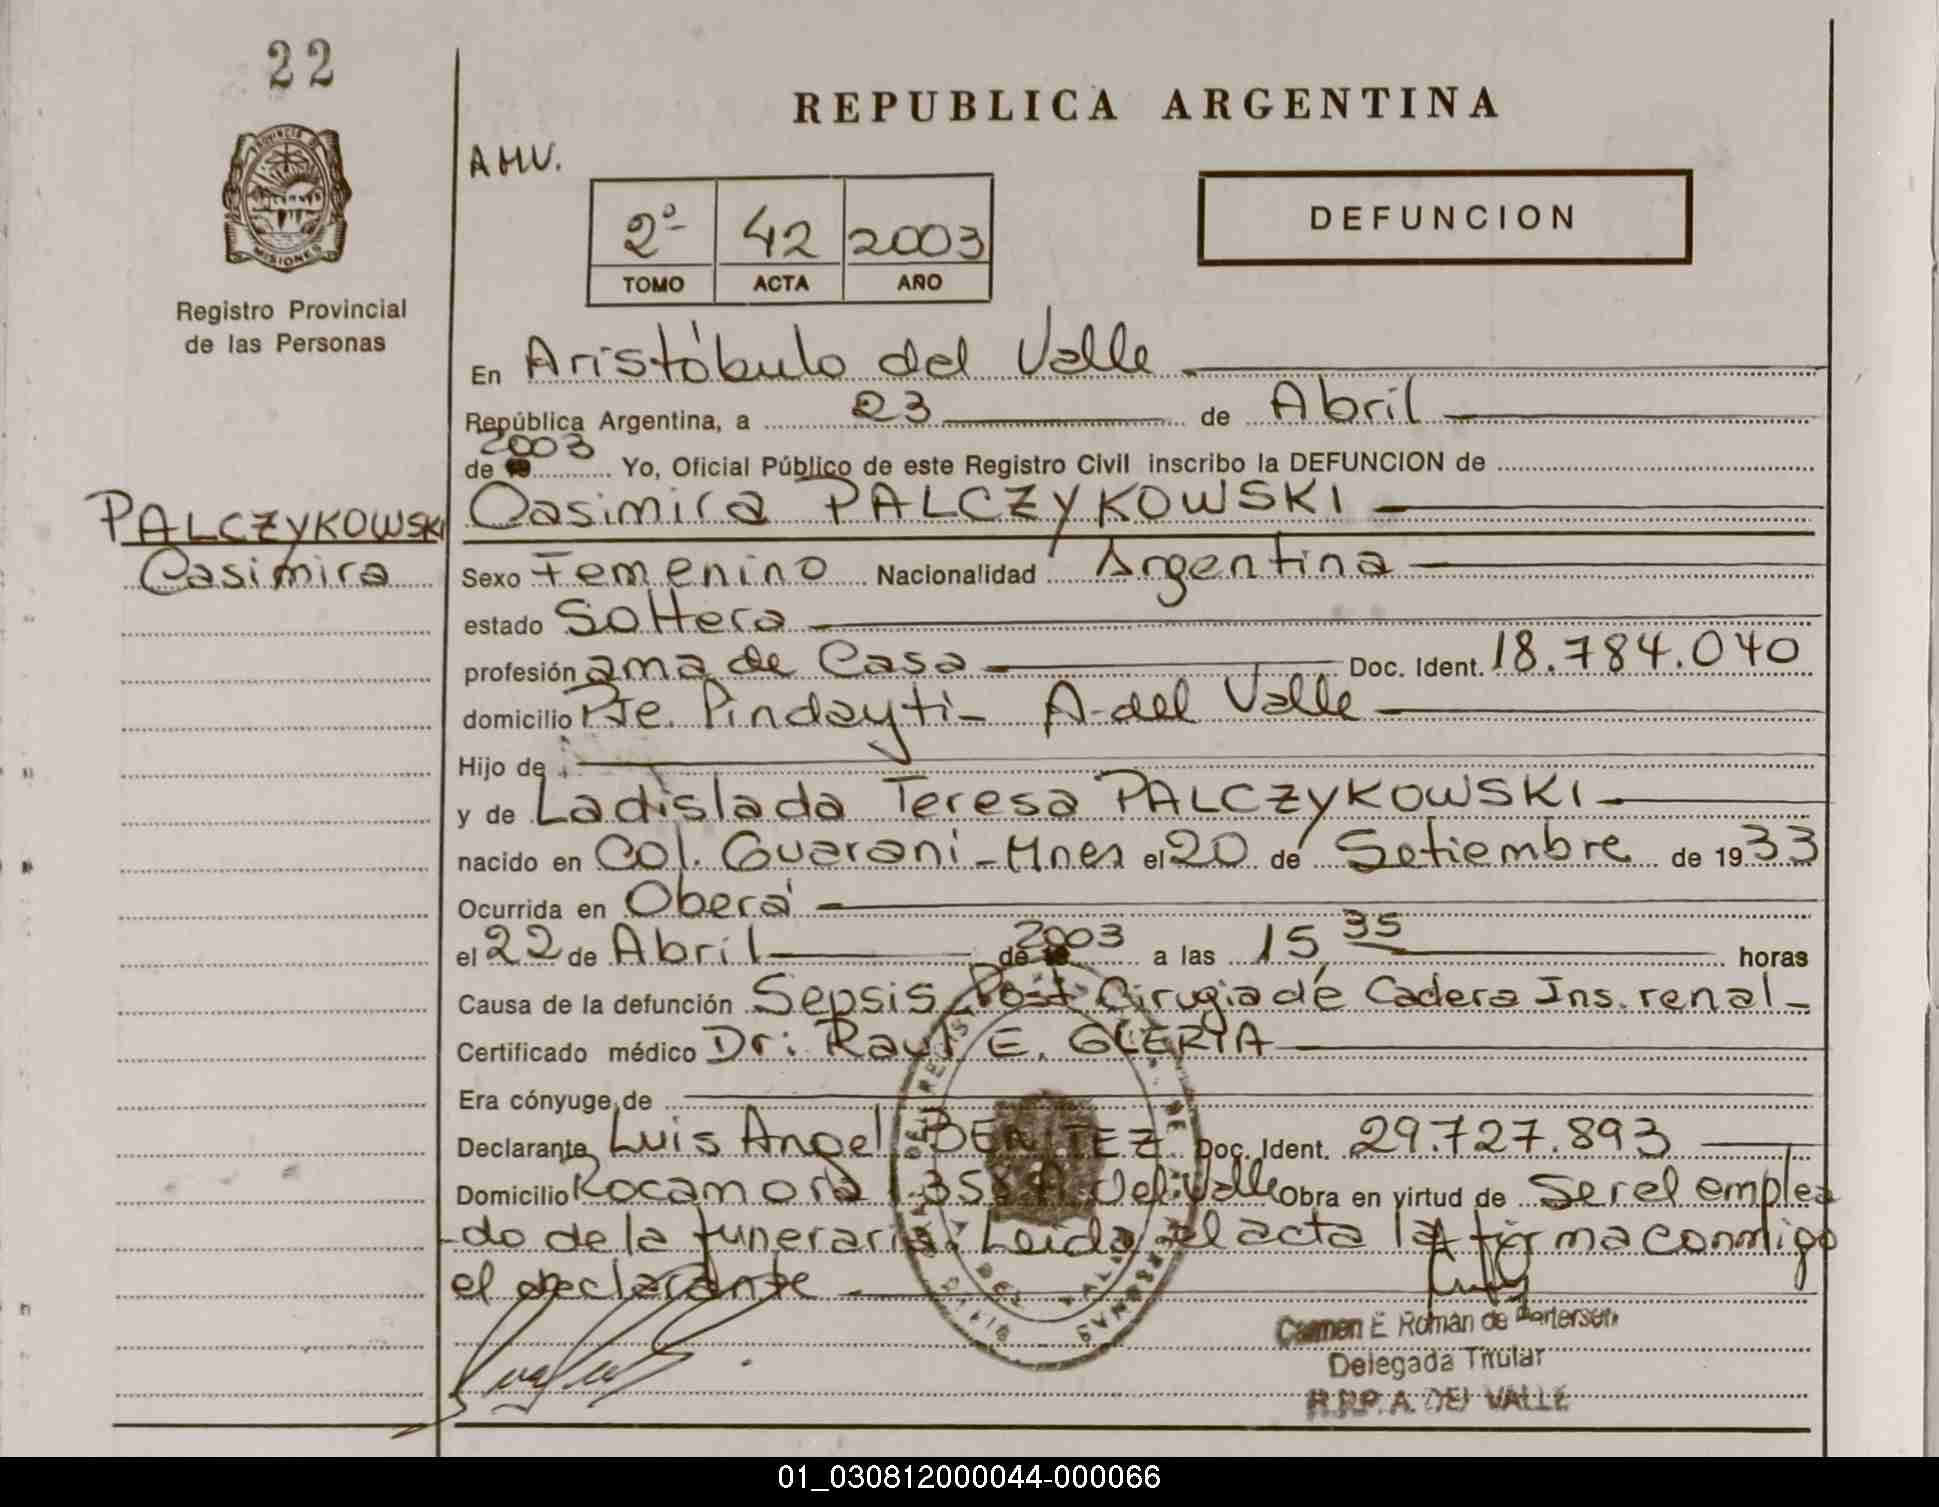 22
REPUBLICA ARGENTINA
AMV.
PROVINCIA DE
MISIONES
Registro Provincial
de las Personas
2º 42 2003
TOMO ACTA AÑO
DEFUNCION
En Aristóbulo del Valle
República Argentina, a 23 de Abril
de 2003 Yo, Oficial Público de este Registro Civil inscribo la DEFUNCION de
PALCZYKOWSKI
Casimira
Casimira PALCZYKOWSKI
Sexo Femenino Nacionalidad Argentina
estado Soltera
profesión ama de Casa Doc. Ident. 18.784.040
domicilio Pje. Pindayti- A-del Valle
Hijo de
y de Ladislada Teresa PALCZYKOWSKI
nacido en Col. Guarani-Mnes el 20 de Setiembre de 1933
Ocurrida en Oberá
el 22 de Abril de 2003 a las 15,35 horas
Causa de la defunción Sepsis Post Cirugia de Cadera Ins. renal-
Certificado médico Dr: Raul E. GLERIA
Era cónyuge de
Declarante Luis Angel BENITEZ Doc. Ident. 29.727.893
Domicilio Rocamora A. del Valle Obra en virtud de Ser el emplea
-do de la funeraria. Leida el acta la firma conmigo
el declarante
Carmen E. Román de
Delegada Titular
R.P.P. A. DEL VALLE
01_030812000044-000066